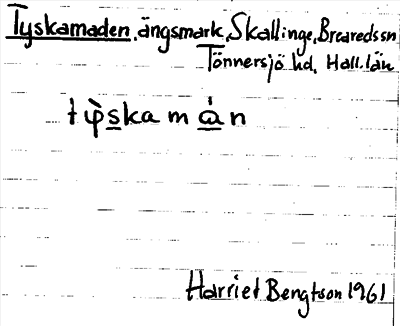 Tyskamaden, ängsmark, Skallinge, Breareds sn
Tönnersjö hd, Hall. län
Harriet Bengtson 1961